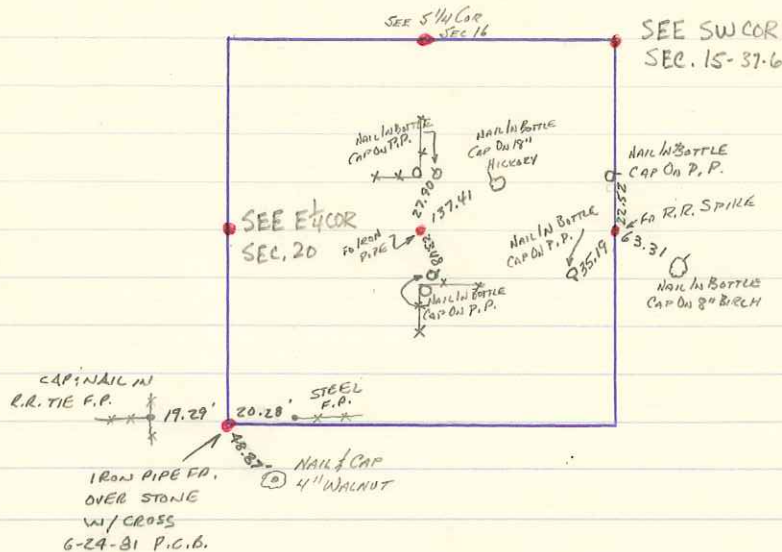 SEE S 1/4 COR
SEC 16
SEE SW COR
SEC. 15-37-6
NAIL IN BOTTLE
CAP ON P.P.
NAIL IN BOTTLE
CAP ON 18"
HICKORY
NAIL IN BOTTLE
CAP ON P.P.
27.90
137.41
22.52
SEE E 1/4 COR
SEC. 20
FD IRON
PIPE
23.48
NAIL IN BOTTLE
CAP ON P.P.
35.19
FD R.R. SPIKE
63.31
NAIL IN BOTTLE
CAP ON P.P.
NAIL IN BOTTLE
CAP ON 8" BIRCH
CAP & NAIL IN
R.R. TIE F.P.
19.29'
20.28'
STEEL
F.P.
48.87'
NAIL & CAP
4" WALNUT
IRON PIPE FD.
OVER STONE
W/ CROSS
6-24-81 P.C.B.